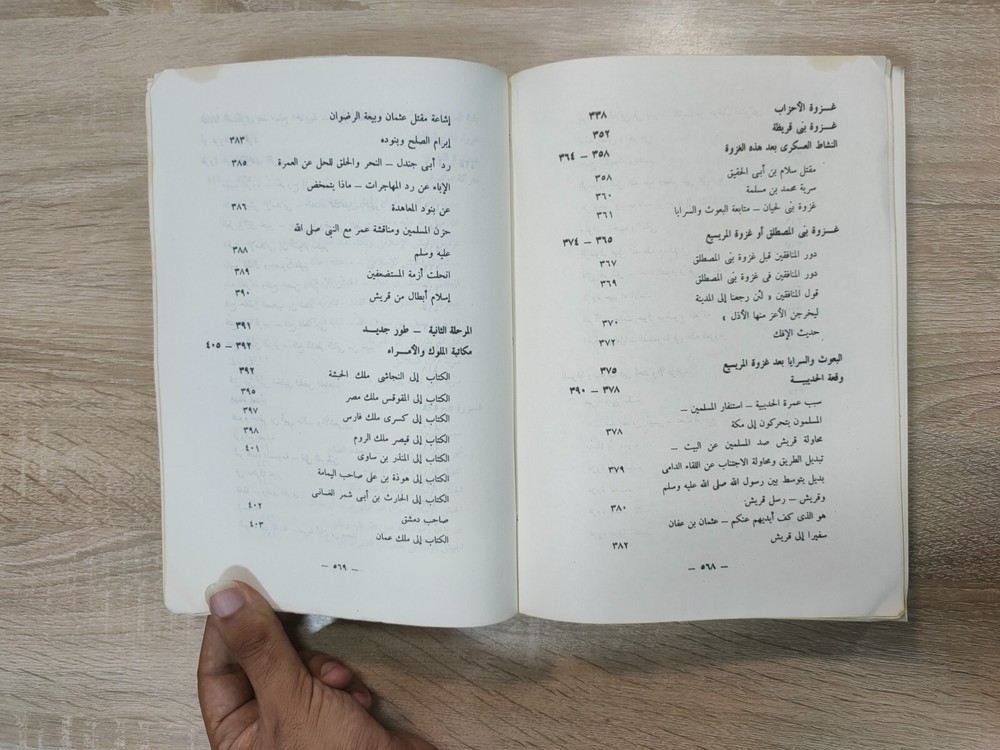 غـــزوة الأحزاب ٣٣٨
غـــزوة بنى قريظة ٣٥٢
النشاط العسكرى بعد هذه الغزوة ٣٥٨ – ٣٦٤
مقتل سلام بن أبى الحقيق ٣٥٨
سرية محمد بن مسلمة ٣٦٠
غزوة بنى لحيان – متابعة البعوث والسرايا ٣٦١
غـــزوة بنى المصطلق أو غزوة المريسيع ٣٦٥ – ٣٧٤
دور المنافقين قبل غزوة بنى المصطلق ٣٦٧
دور المنافقين فى غزوة بنى المصطلق ٣٦٩
قول المنافقين « لئن رجعنا إلى المدينة
ليخرجن الأعز منها الأذل » ٣٧٠
حديث الإفك ٣٧٢
البعوث والسرايا بعد غزوة المريسيع ٣٧٥
وقعة الحديبيـــة ٣٧٨ – ٣٩٠
سبب عمرة الحديبية – استنفار المسلمين –
المسلمون يتحركون إلى مكة ٣٧٨
محاولة قريش صد المسلمين عن البيت –
تبديل الطريق ومحاولة الاجتناب عن اللقاء الدامى ٣٧٩
بديل يتوسط بين رسول الله صلى الله عليه وسلم
وقريش – رسل قريش ٣٨٠
هو الذى كف أيديهم عنكم – عثمان بن عفان
سفيرا إلى قريش ٣٨٢
– ٥٦٨ –
إشاعة مقتل عثمان وبيعة الرضوان
إبرام الصلح وبنوده ٣٨٣
رد أبى جندل – النحر والحلق للحل عن العمرة ٣٨٥
الإباء عن رد المهاجرات – ماذا يتمخض
عن بنود المعاهدة ٣٨٦
حزن المسلمين ومناقشة عمر مع النبى صلى الله
عليه وسلم ٣٨٨
انحلت أزمة المستضعفين ٣٨٩
إسلام أبطال من قريش ٣٩٠
المرحلة الثانية – طور جديـــد ٣٩١
مكاتبة الملوك والأمـــراء ٣٩٢ – ٤٠٥
الكتاب إلى النجاشى ملك الحبشة ٣٩٢
الكتاب إلى المقوقس ملك مصر ٣٩٥
الكتاب إلى كسرى ملك فارس ٣٩٧
الكتاب إلى قيصر ملك الروم ٣٩٨
الكتاب إلى المنذر بن ساوى ٤٠١
الكتاب إلى هوذة بن على صاحب اليمامة
الكتاب إلى الحارث بن أبى شمر الغسانى
صاحب دمشق ٤٠٢
الكتاب إلى ملك عمان ٤٠٣
– ٥٦٩ –